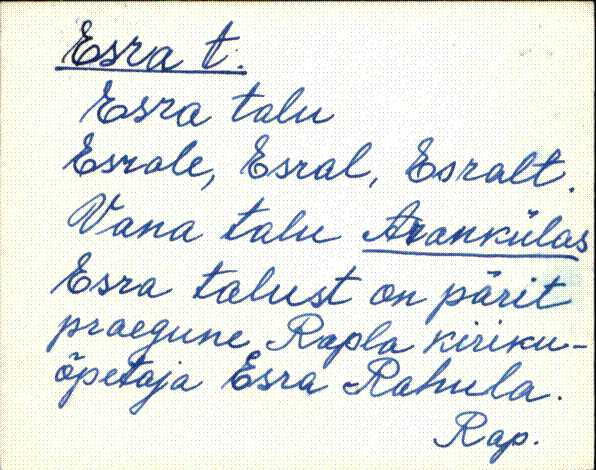 Esra t.
Esra talu
Esrale, Esral, Esralt.
Vana talu Arankülas
Esra talust on pärit
praegune Rapla kiriku-
õpetaja Esra Rahula.
Rap.